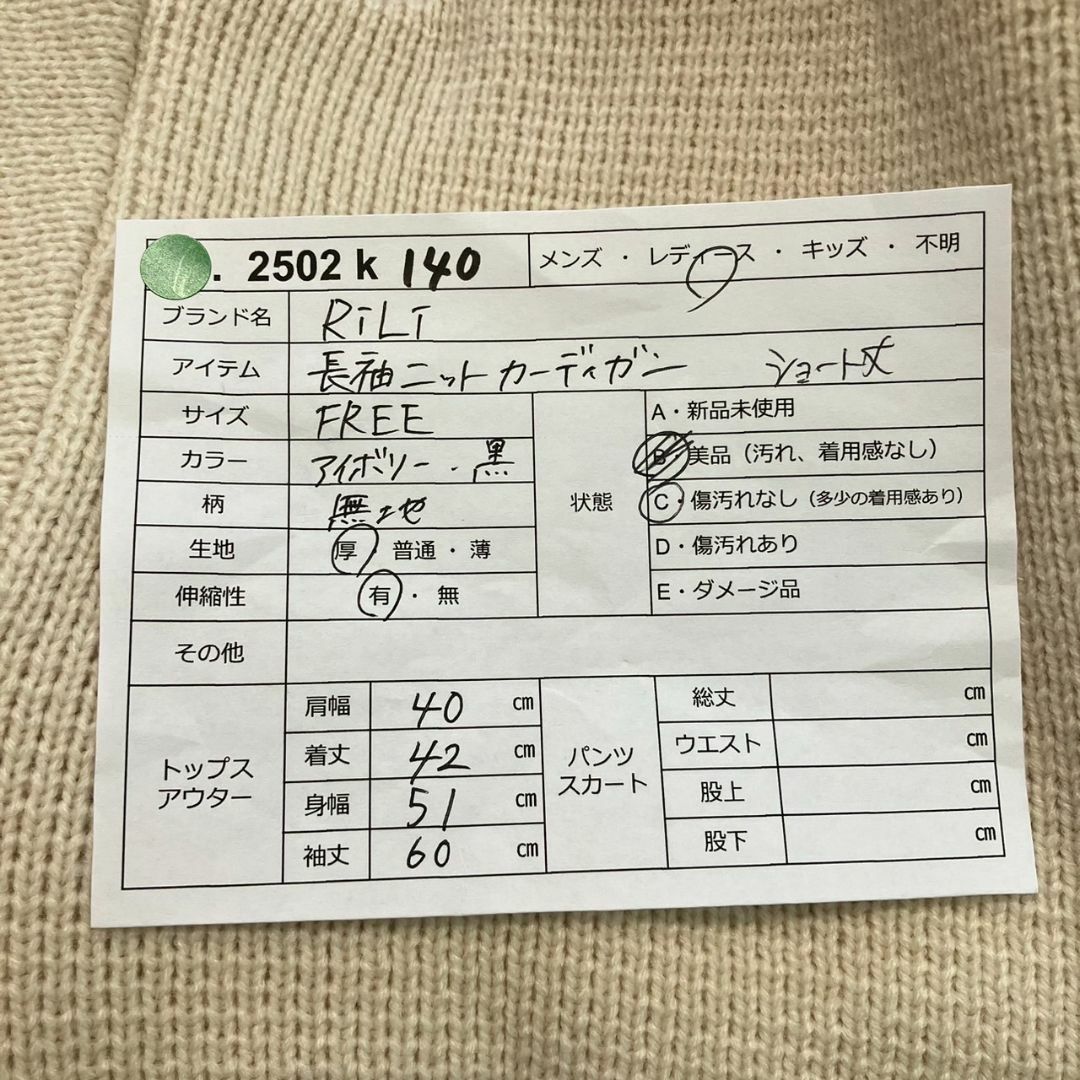 . 2502 k 140
メンズ ・ レディース ・ キッズ ・ 不明
ブランド名 RiLi
アイテム 長袖ニットカーディガン ショート丈
サイズ FREE
カラー アイボリー・黒
柄 無地
生地 厚・普通・薄
伸縮性 有・無
状態
A・新品未使用
B・美品（汚れ、着用感なし）
C・傷汚れなし（多少の着用感あり）
D・傷汚れあり
E・ダメージ品
その他
トップス
アウター
肩幅 40 ㎝
着丈 42 ㎝
身幅 51 ㎝
袖丈 60 ㎝
パンツ
スカート
総丈 ㎝
ウエスト ㎝
股上 ㎝
股下 ㎝